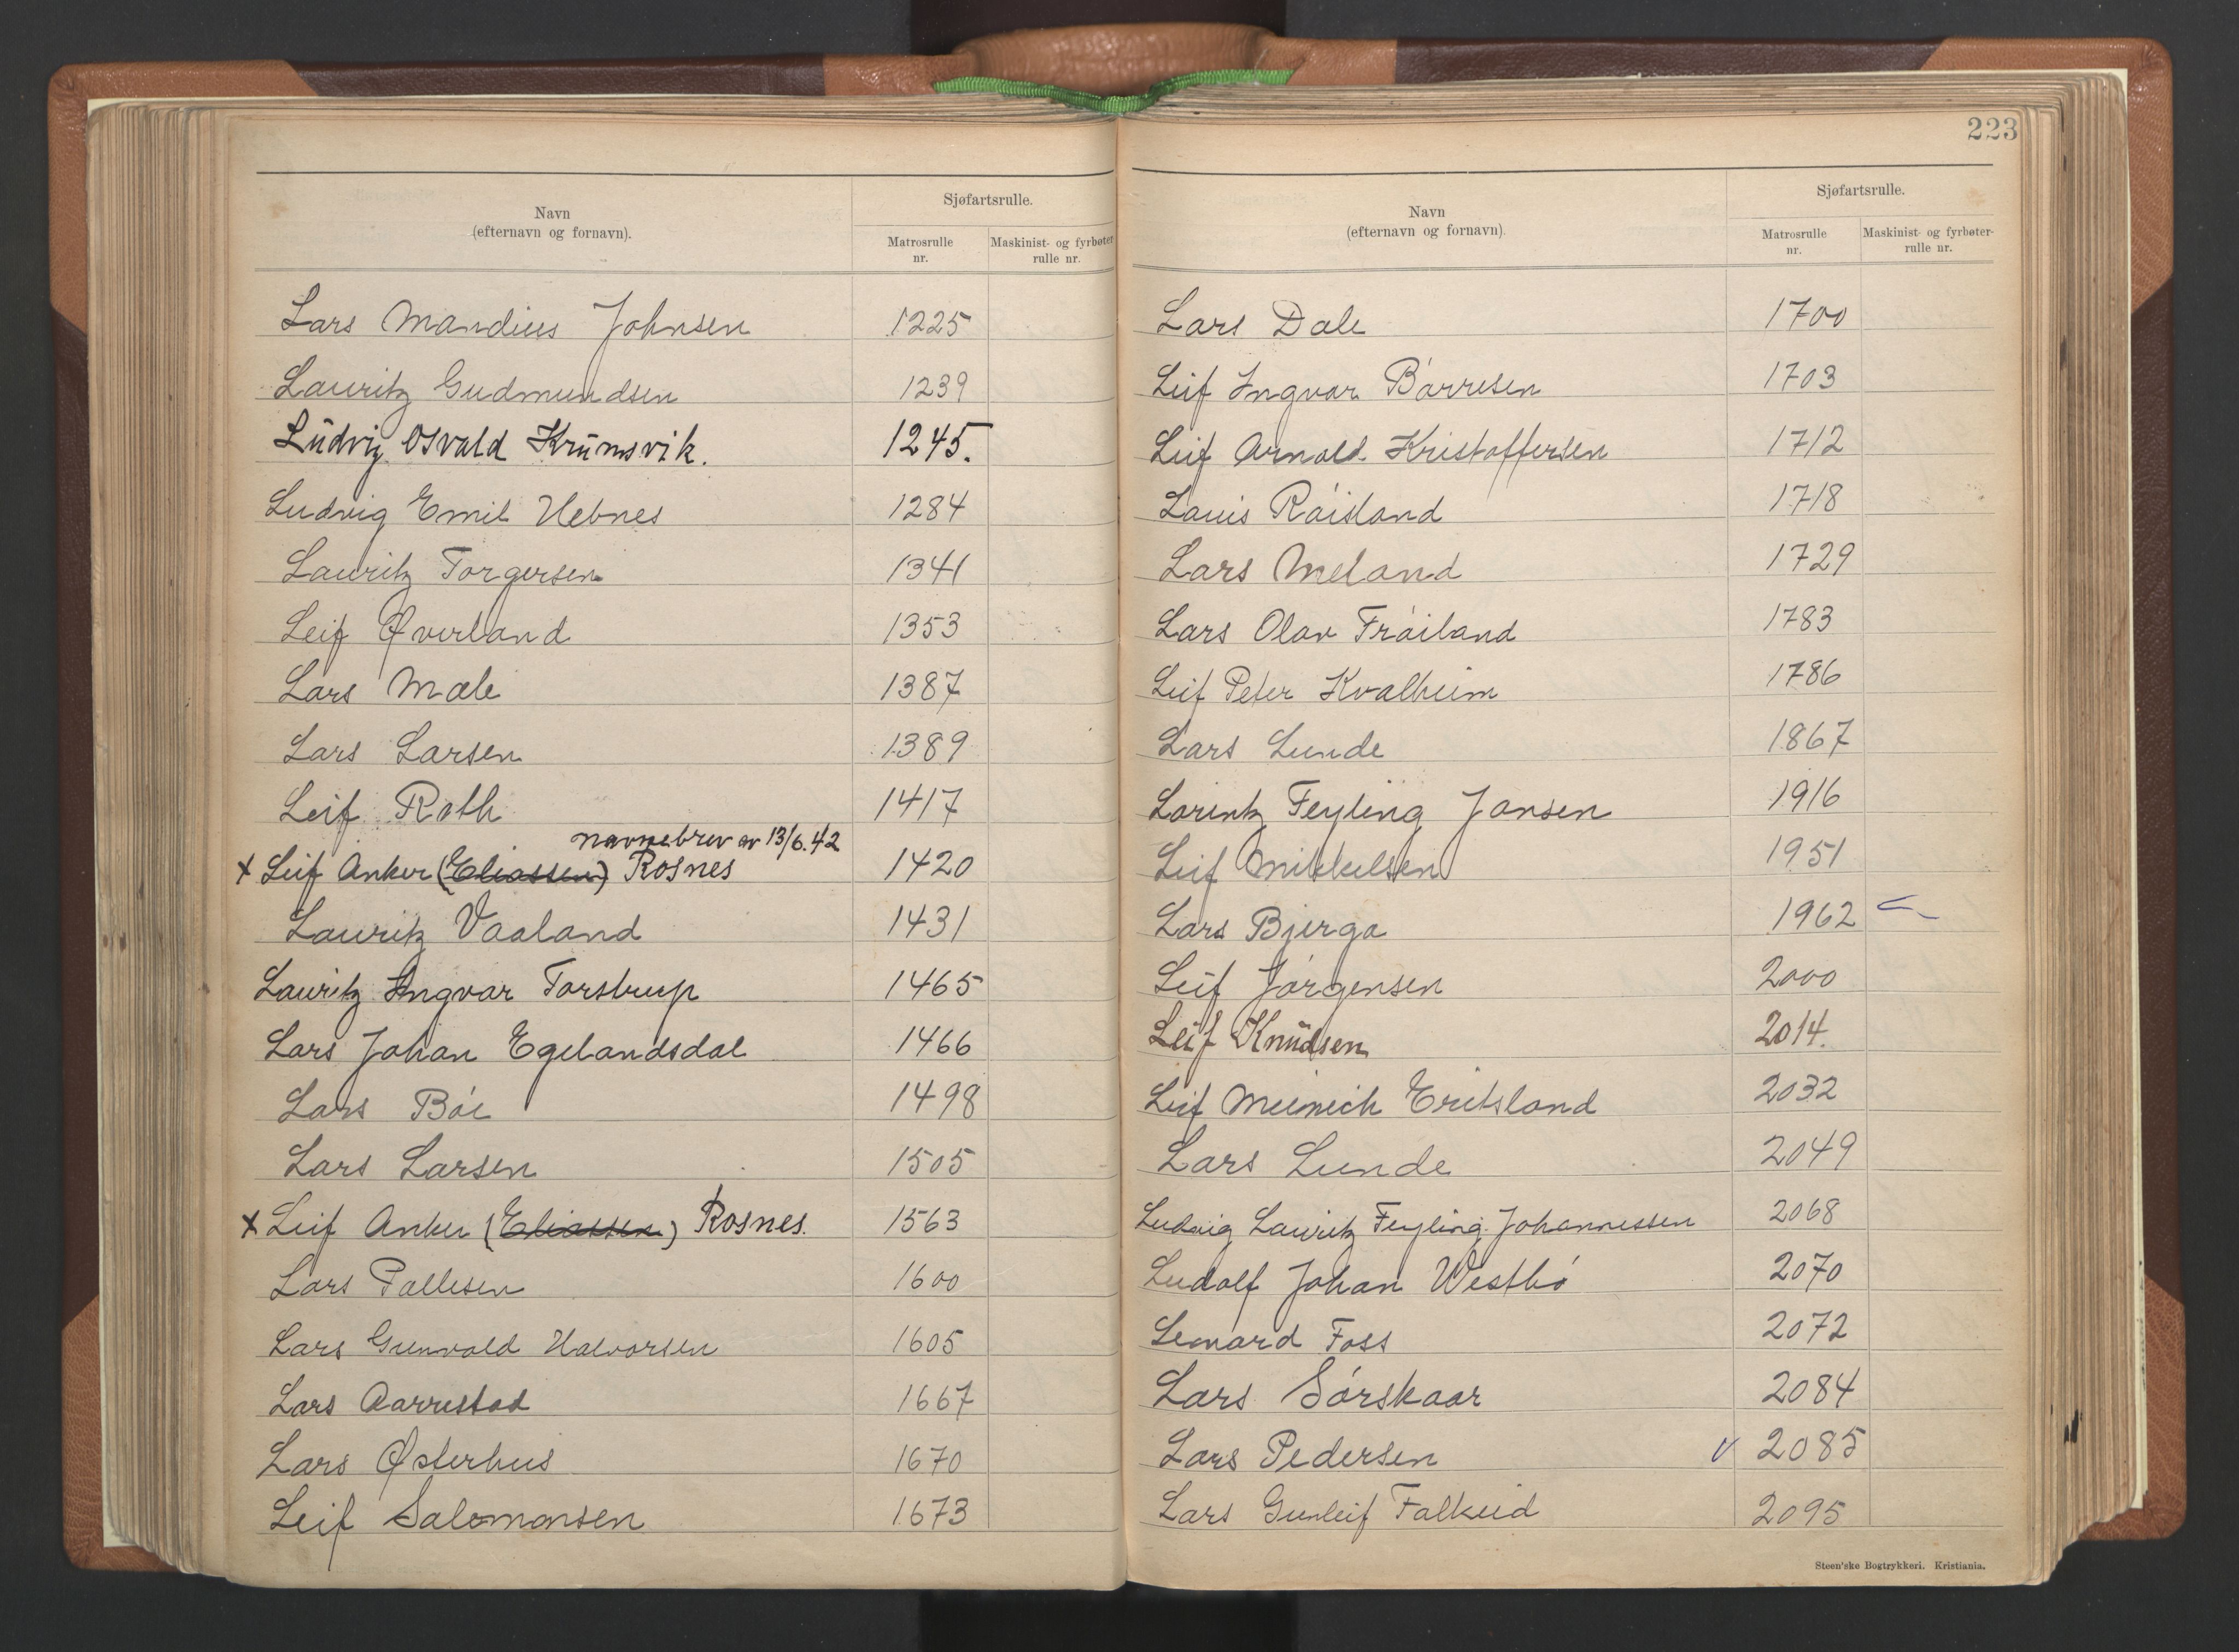 Navn
(efternavn og fornavn).
Sjøfartsrulle.
Matrosrulle
nr.
Maskinist- og fyrbøter
rulle nr.
Lars Mandius Johnsen 1225
Lauritz Gudmundsen 1239
Ludvig Osvald Krumsvik. 1245.
Ludvig Emil Hebnes 1284
Lauritz Torgersen 1341
Leif Øverland 1353
Lars Mæle 1387
Lars Larsen 1389
Leif Roth 1417
navnebrev av 13/6.42
x Leif Anker (Eliassen) Rosnes 1420
Lauritz Vaaland 1431
Lauritz Ingvar Torstrup 1465
Lars Johan Egelandsdal 1466
Lars Böe 1498
Lars Larsen 1505
x Leif Anker (Eliassen) Rosnes. 1563
Lars Pallesen 1600
Lars Gunvald Halvorsen 1605
Lars Aarrestad 1667
Lars Østerhus 1670
Leif Salomonsen 1673
223
Navn
(efternavn og fornavn).
Sjøfartsrulle.
Matrosrulle
nr.
Maskinist- og fyrbøter-
rulle nr.
Lars Dale 1700
Leif Ingvar Börresen 1703
Leif Arnold Kristoffersen 1712
Louis Röisland 1718
Lars Meland 1729
Lars Olav Fröiland 1783
Leif Peter Kvalheim 1786
Lars Lunde 1867
Lorintz Feyling Jansen 1916
Leif Mikkelsen 1951
Lars Bjerga 1962
Leif Jörgensen 2000
Leif Knudsen 2014.
Leif Meinich Eritsland 2032
Lars Lunde 2049
Ludvig Lauritz Feyling Johannessen 2068
Ludolf Johan Westbö 2070
Lenard Foss 2072
Lars Sörskaar 2084
Lars Pedersen v 2085
Lars Gunleif Falkeid 2095
Steen'ske Bogtrykkeri. Kristiania.